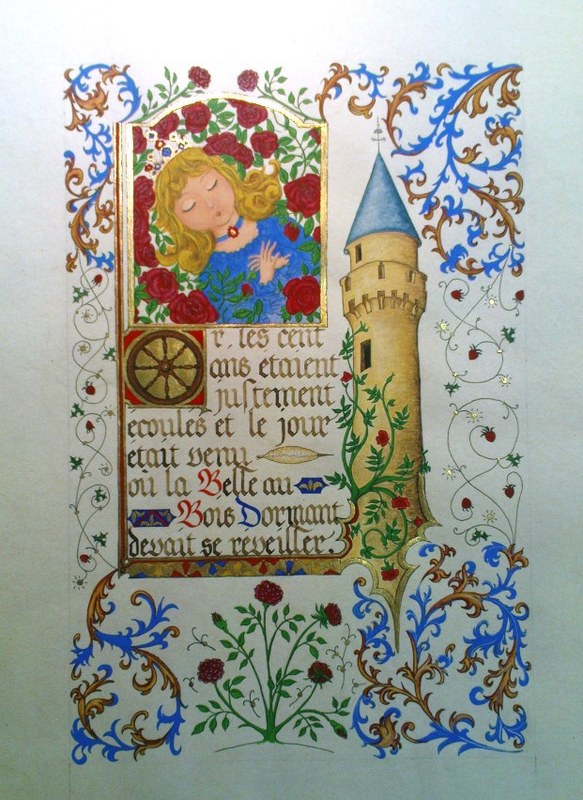 Or, les cent
ans etaient
juſtement
ecoulés et le jour
etait venu
ou la Belle au
Bois Dormant
devait se reveiller.